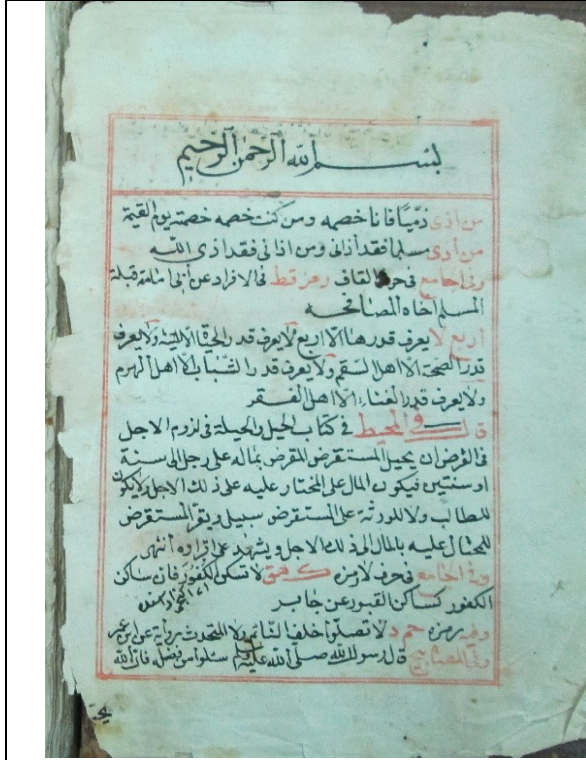 بسم الله الرحمن الرحيم
من اذى ذميا فانا خصمه ومن كنت خصمه خصمته يوم القيمة
من اذى مسلما فقد اذانى ومن اذانى فقد اذى الله
وفى الجامع فى حرف القاف رمز قط فى الافراد عن أبى امامة قبلة
المسلم اخاه المصافحه
اربع لا يعرف قدرها الا اربع لا يعرف قدر الحيوة الا الميت ولا يعرف
قدر الصحة الا اهل السقم ولا يعرف قدر الشباب الا اهل الهرم
ولا يعرف قدر الغناء الا اهل الفقر
قال فى المحيط فى كتاب الحيل والحيلة فى لزوم الاجل
فى القرض ان يحيل المستقرض المقرض بماله على رجل الى سنة
او سنتين فيكون المال على المحتار عليه على ذلك الاجل ولا يكون
للطالب ولا للورثة على المستقرض سبيل ويقر المستقرض
للمحتال عليه بالمال الى ذلك الاجل ويشهد على اقراره أنتهى
وفى الجامع فى حرف لا رمز هق لا تسكن الكفور فان ساكن
الكفور كساكن القبور عن جابر
وفيه رمزه حم د لا تصلوا خلف النائم ولا المتحدث
وفى المصابيح قال رسول الله صلى الله عليه وسلم سئلوا من فضله فان الله